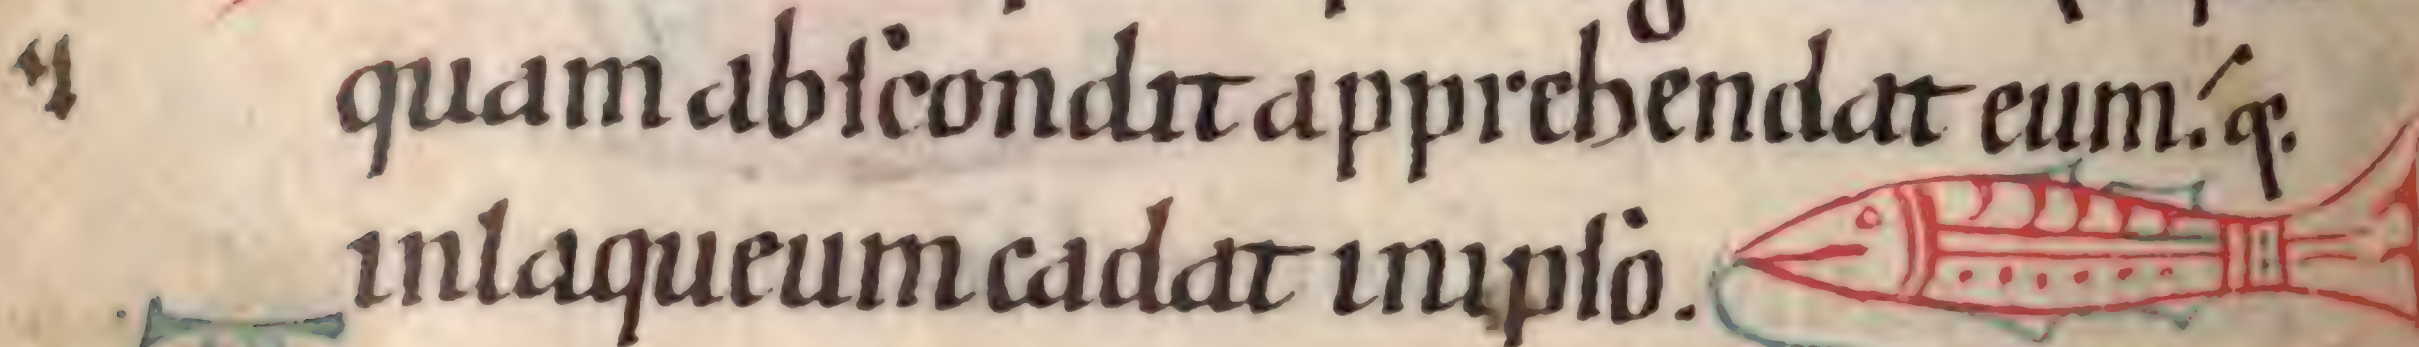 quam abscondit apprehendat eum. q.
inlaqueum cadat inipso.